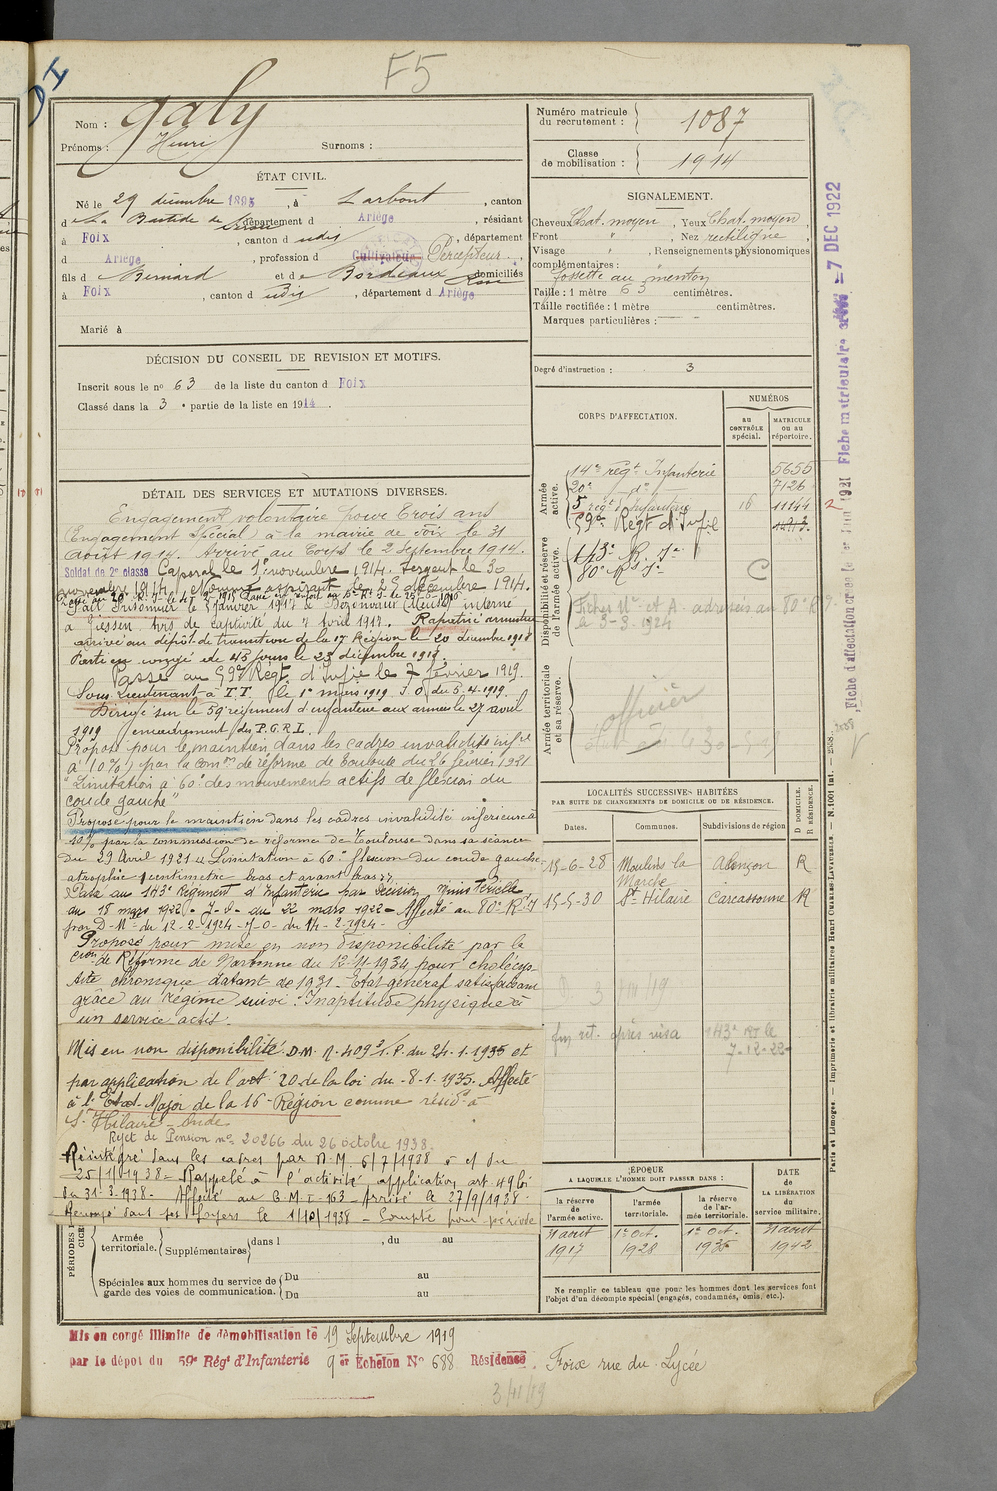 F5
Nom : Galy
Prénoms : Henri Surnoms :
Numéro matricule du recrutement : 1087
Classe de mobilisation : 1914
ÉTAT CIVIL.
Né le 29 décembre 1895, à Larbont, canton
d La Bastide de département d Ariège, résidant
à Foix, canton d udis, département
d Ariège, profession d Cultivateur Percepteur.
fils d Bernard et d Bordeaux domiciliés
à Foix, canton d udis, département d Ariège
Marié à
SIGNALEMENT.
Cheveux Chat. moyen, Yeux Chat. moyen
Front " , Nez rectiligne,
Visage " , Renseignements physionomiques
complémentaires :
fossette au menton
Taille : 1 mètre 63 centimètres.
Taille rectifiée : 1 mètre centimètres.
Marques particulières : —
Degré d'instruction : 3
DÉCISION DU CONSEIL DE REVISION ET MOTIFS.
Inscrit sous le n° 63 de la liste du canton d Foix
Classé dans la 3e partie de la liste en 1914.
DÉTAIL DES SERVICES ET MUTATIONS DIVERSES.
Engagement volontaire pour trois ans
(Engagement Spécial) à la mairie de Foix le 31
août 1914. Arrivé au Corps le 2 septembre 1914.
Soldat de 2e classe Caporal le 1er novembre 1914. Sergent le 30
novembre 1914. Nommé aspirant le 25 décembre 1914.
Fait prisonnier le janvier 1917 à Bezonvaux (Meuse) interné
à Giessen avis de captivité du 7 avril 1917. Rapatrié
arrivé au dépôt de transition de la 17e Région le 20 décembre 1918
Parti en congé de 45 jours le 23 décembre 1918.
Passé au 59e Régt d'Infie le 7 février 1919.
Sous Lieutenant à T.T. le 1er mars 1919 J.O. du 6.4.1919.
Dirigé sur le 59e régiment d'infanterie aux armées le 27 avril
1919 encadrement des P.G.R.I.
Proposé pour le maintien dans les cadres invalidité infre
à 10% par la comon de réforme de Toulouse du 26 février 1921
"Limitation à 60° des mouvements actifs de flexion du
coude gauche"
Proposé pour le maintien dans les cadres invalidité inférieure à
10% par la commission de réforme de Toulouse dans sa séance
du 29 Avril 1921 "Limitation à 60° flexion du coude gauche
atrophie 1 centimètre bras et avant bras"
Passé au 143e Régiment d'Infanterie par décision ministérielle
du 18 mars 1922 - J.O. du 22 mars 1922 - Affecté au 80e R.I
par D.M. du 12-2-1924 - J-O- du 14-2-1924-
Proposé pour mise en non disponibilité par la
Cion de Réforme de Narbonne du 12-11-1934 pour cholécys-
tite chronique datant de 1931 - Etat général satisfaisant
grâce au régime suivi. Inaptitude physique à
un service actif.
Mis en non disponibilité D.M. N. 409 du 24-1-1935 et
par application de l'art 20 de la loi du 8-1-1935. Affecté
à l'Etat-Major de la 16e Région comme résidt à
St Hilaire - Aude
Rejet de Pension n° 20266 du 26 octobre 1938.
Réintégré dans les cadres par D.M. 6/7/1938 et du
25/1/1938 - Rappelé à l'activité, application art. 49 loi
du 31-3-1938 - Affecté au C.M.I-163 - Arrivé le 27/9/1938.
Renvoyé dans ses foyers le 1/10/1938 - Compte pour période
PÉRIODES
Armée territoriale. Supplémentaires dans l , du au
Spéciales aux hommes du service de garde des voies de communication. Du au
Du au
CORPS D'AFFECTATION.
NUMÉROS
au contrôle spécial. matricule ou au répertoire.
Armée active.
14e régt Infanterie 5655
20e do 7126
5 régt Infanterie 16 11144
59e Régt d'Infie 1213
Disponibilité et réserve de l'armée active.
143e R.I.
80e R.I. C
Fiches Me et A adressées au 80e R.I.
le 3-3-1924
Armée territoriale et sa réserve.
officier
LOCALITÉS SUCCESSIVES HABITÉES
PAR SUITE DE CHANGEMENTS DE DOMICILE OU DE RÉSIDENCE.
D DOMICILE. R RÉSIDENCE.
Dates. Communes. Subdivisions de région
15-6-28 Moulins la Marche Alençon R
15-5-30 St Hilaire Carcassonne R
143e RI le
7-12-22
ÉPOQUE
A LAQUELLE L'HOMME DOIT PASSER DANS :
la réserve de l'armée active. l'armée territoriale. la réserve de l'armée territoriale.
DATE DE LA LIBÉRATION du service militaire.
31 août 1917 1er Oct. 1928 1er Oct. 1935 31 août 1942
Ne remplir ce tableau que pour les hommes dont les services font
l'objet d'un décompte spécial (engagés, condamnés, omis, etc.).
Mis en congé illimité de démobilisation le 19 Septembre 1919
par le dépôt du 59e Régt d'Infanterie 9er Echelon N° 688 Résidence. Foix rue du Lycée
3/11/19
7 DEC 1922
Paris et Limoges. — Imprimerie et librairie militaires Henri CHARLES-LAVAUZELLE. — N. 1001 Int. — 2558.